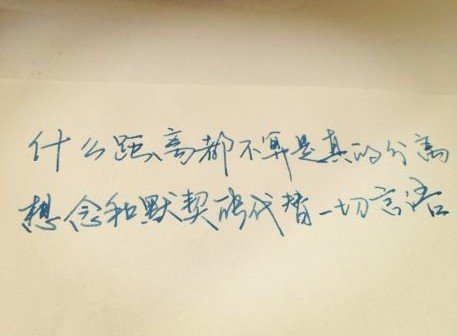 什么距离都不算是真的分离
想念和默契能代替一切言语